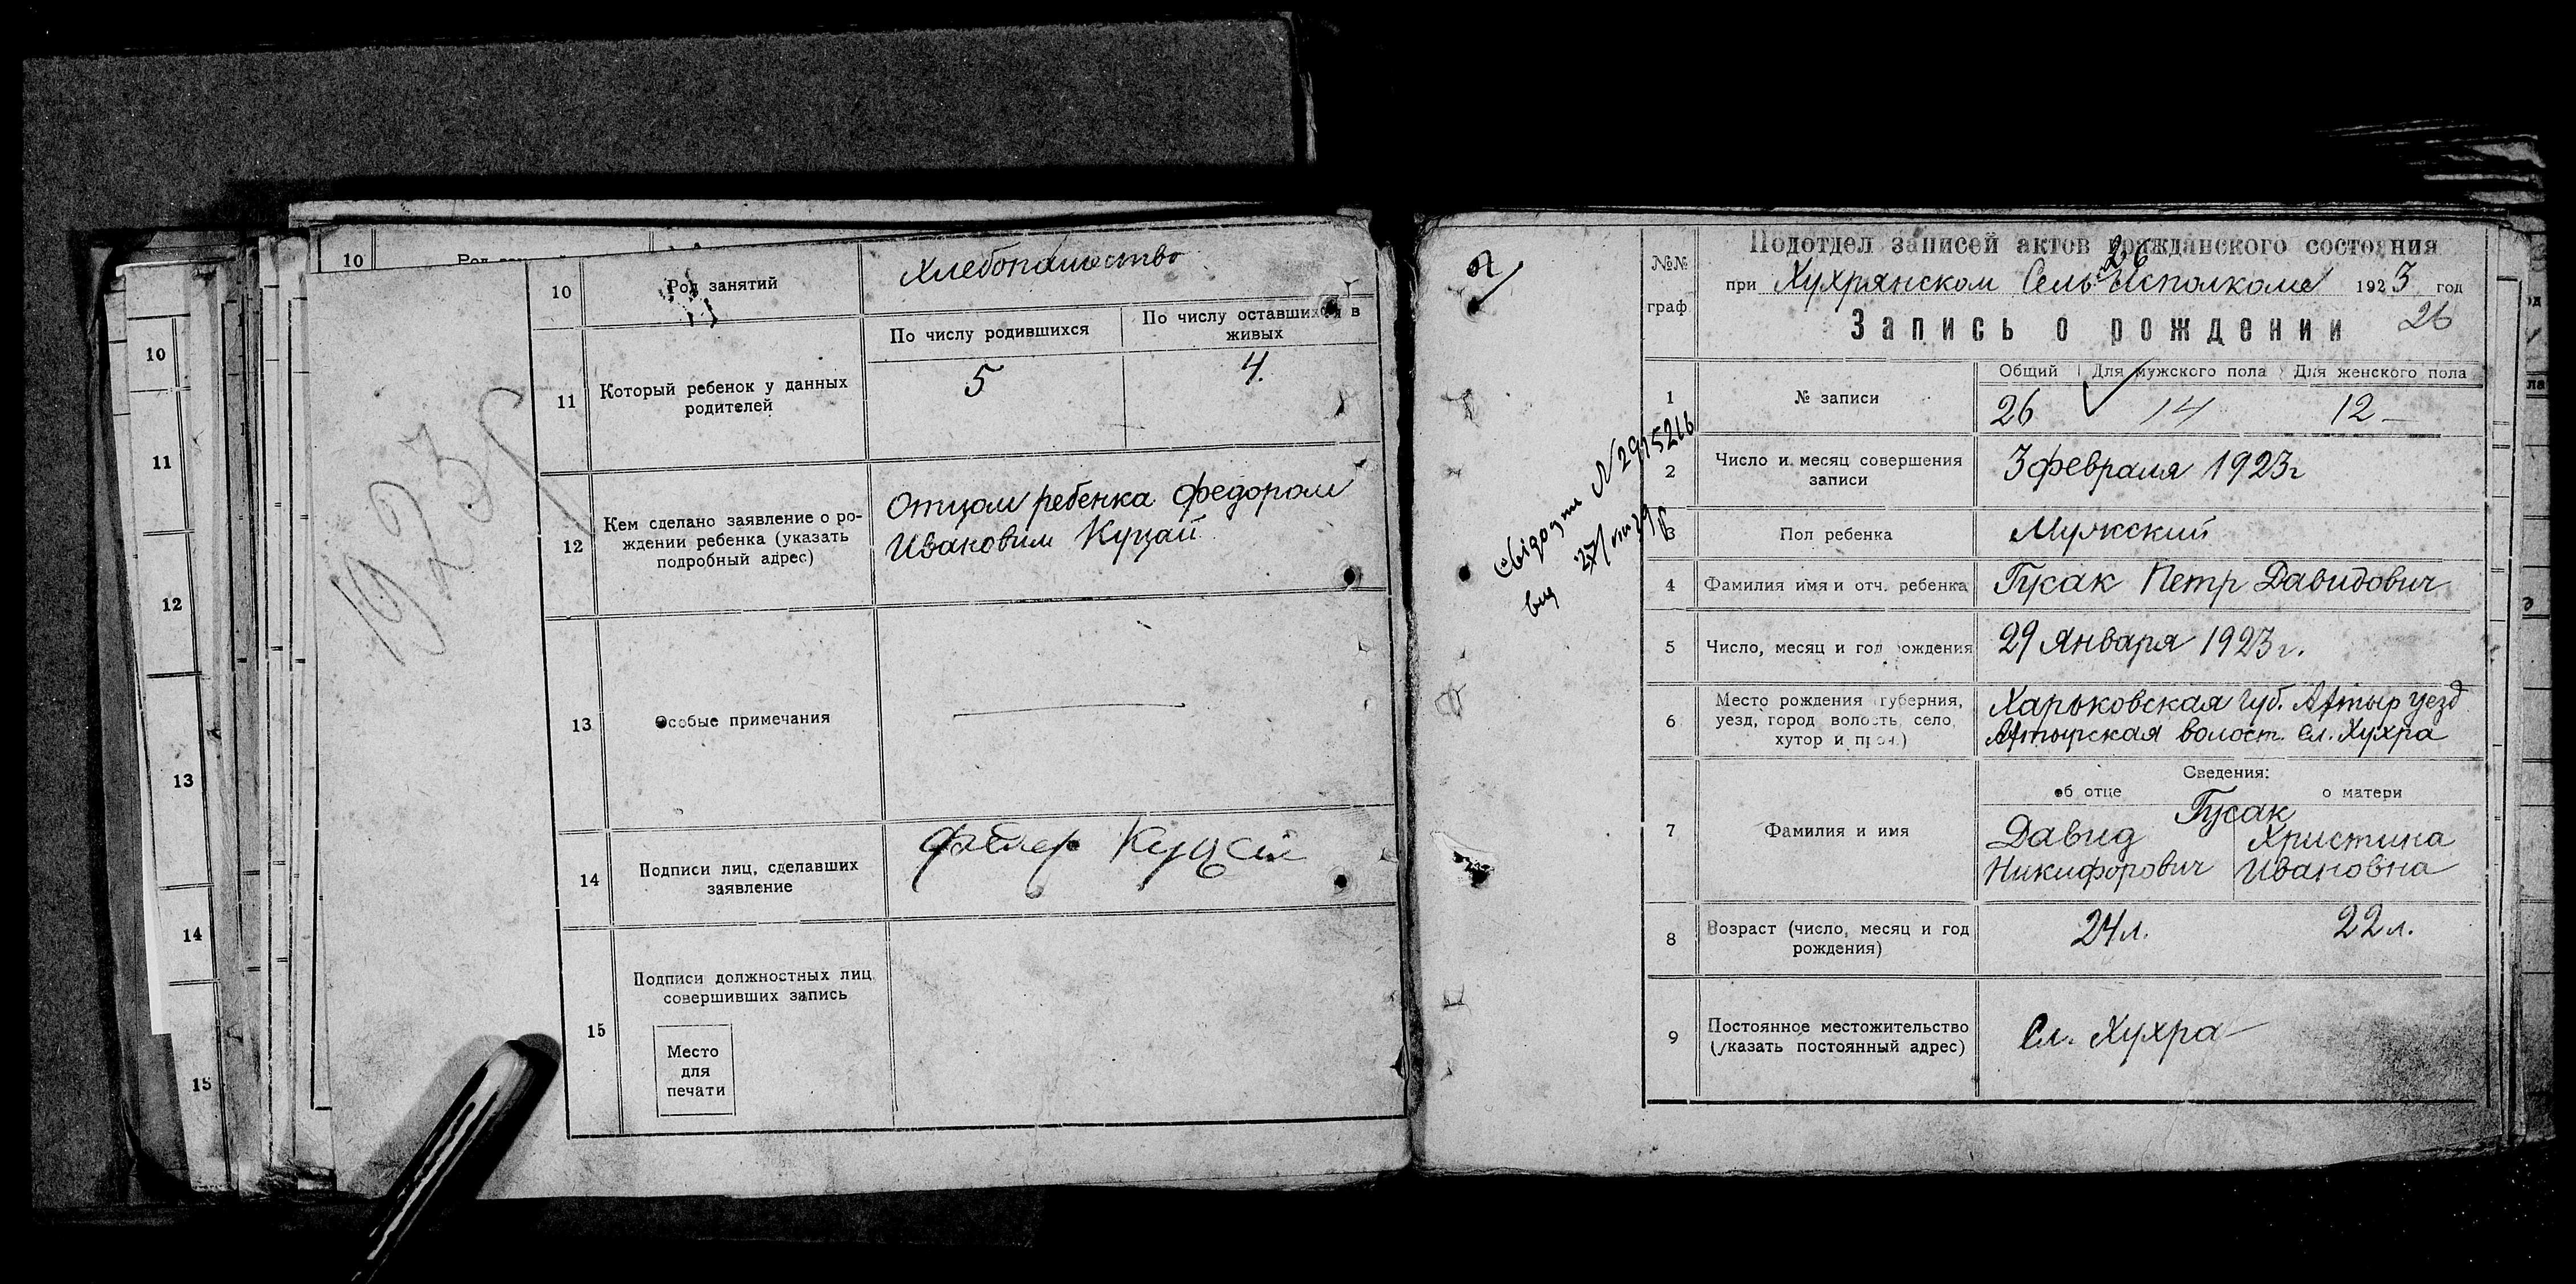 10
10
11
12
13
14
15
1923
10 Род занятий Хлебопашество
11 Который ребенок у данных родителей
По числу родившихся
По числу оставшихся в живых
5
4.
12 Кем сделано заявление о ро-
ждении ребенка (указать
подробный адрес)
Отцом ребенка Федором
Ивановим Куцай
13 Особые примечания
14 Подписи лиц, сделавших
заявление
Куцай
15 Подписи должностных лиц,
совершивших запись
Место
для
печати
№№
граф
Подотдел записей актов гражданского состояния
26
при Хухрянском Сель-Исполкоме 1923 год
Запись о рождении
26
1 № записи
Общий Для мужского пола Для женского пола
26 14 12 –
2 Число и месяц совершения
записи
3 февраля 1923г
3 Пол ребенка Мужский
4 Фамилия имя и отч. ребенка Гусак Петр Давидович
5 Число, месяц и год рождения 29 Января 1923 г.
6 Место рождения (губерния,
уезд, город, волость, село,
хутор и проч.)
Харьковская губ. Ахтыр уезд
Ахтырская волост. Сл. Хухра
7 Фамилия и имя
Сведения:
об отце о матери
Гусак
Давид Христина
Никифорович Ивановна
8 Возраст (число, месяц и год
рождения)
24 л. 22 л.
9 Постоянное местожительство
(указать постоянный адрес)
Сл. Хухра